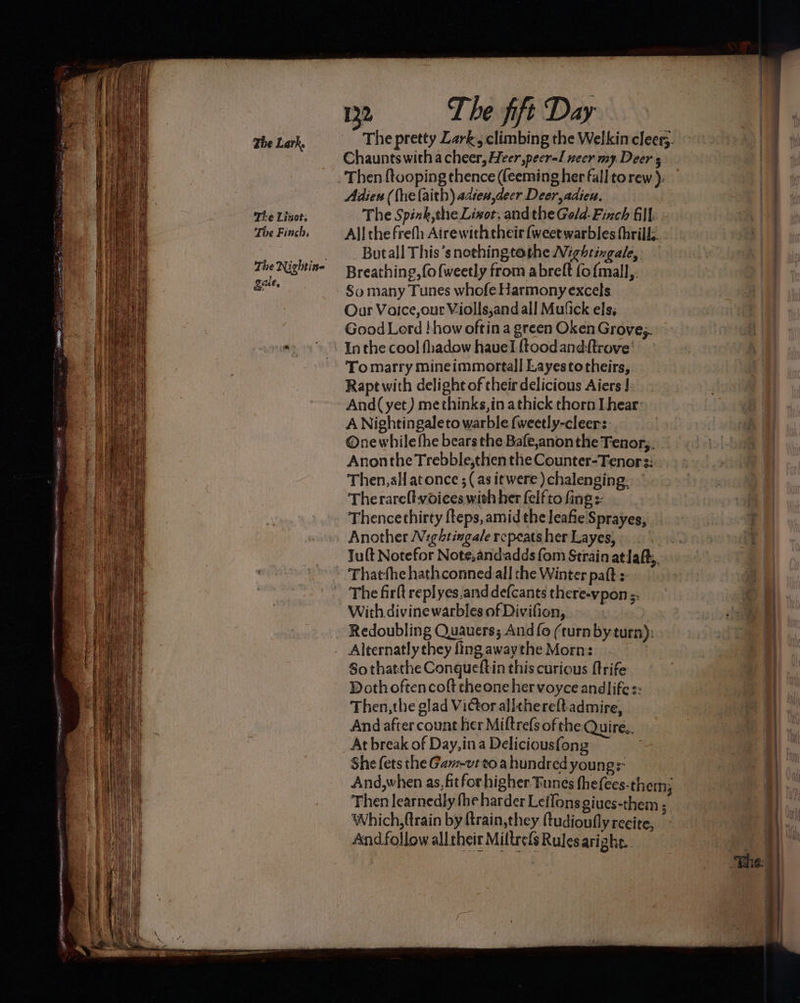 132 The fift Day
The Lark.
The pretty Lark, climbing the Welkin cleer,
Chaunts with a cheer, Heer, peer-I neer my Deer;
Then ſtooping thence (ſeeming her fall to rew)
Adieu (ſhe ſaith) adieu, deer Deer, adieu.
The Linot.
The Spink, the Linot, and the Gold-Finch fill
The Finch.
All the freſh Aire with their ſweet warbles ſhrill.
But all This's nothing to the Nightingale,
The Nightin-
gale.
Breathing, ſo ſweetly from a breſt ſo ſmall,
So many Tunes whoſe Harmony excels
Our Voice, our Violls, and all Muſick els.
Good Lord! how oft in a green Oken Grove,
In the cool ſhadow haue I ſtood and ſtrove
To marry mine immortall Layes to theirs,
Rapt with delight of their delicious Aiers!
And (yet) methinks, in a thick thorn I hear
A Nightingale to warble ſweetly-cleer:
One while ſhe bears the Baſe, anon the Tenor,
Anon the Trebble, then the Counter-Tenor:
Then, all at once; (as it were) chalenging
The rareſt voices with her ſelf to ſing:
Thence thirty ſteps, amid the leafie Sprayes,
Another Nightingale repeats her Layes,
Juſt Note for Note, and adds ſom Strain at laſt,
That ſhe hath conned all the Winter paſt:
The firſt replyes, and deſcants there-vpon;
With divine warbles of Diviſion,
Redoubling Quauers; And ſo (turn by turn)
Alternatly they ſing away the Morn:
So that the Conqueſt in this curious ſtrife
Doth often coſt the one her voyce and life:
Then, the glad Victor all the reſt admire,
And after count her Miſtreſs of the Quire.
At break of Day, in a Delicious ſong
She ſets the Gam-vt to a hundred young:
And, when as, fit for higher Tunes ſhe ſees-them,
Then learnedly ſhe harder Leſſons giues-them;
Which, ſtrain by ſtrain, they ſtudiouſly recite,
And follow all their Miſtreſs Rules aright.
The